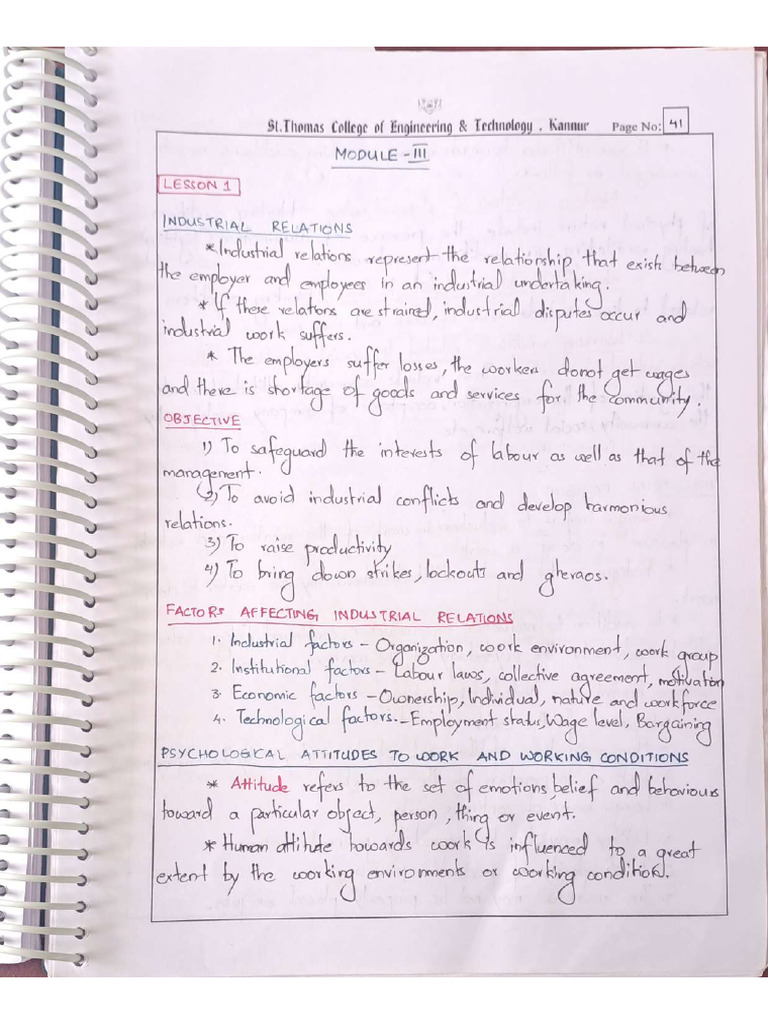 St.Thomas College of Engineering & Technology , Kannur Page No: 41
MODULE - III
LESSON 1
INDUSTRIAL RELATIONS
* Industrial relations represent the relationship that exist between
the employer and employees in an industrial undertaking.
* If these relations are strained, industrial disputes occur and
industrial work suffers.
* The employers suffer losses, the workers donot get wages
and there is shortage of goods and services for the community.
OBJECTIVE
1) To safeguard the interests of labour as well as that of the
management.
2) To avoid industrial conflicts and develop harmonious
relations.
3) To raise productivity
4) To bring down strikes, lockouts and gheraos.
FACTORS AFFECTING INDUSTRIAL RELATIONS
1. Industrial factors - Organization, work environment, work group
2. Institutional factors - Labour laws, collective agreement, motivation
3. Economic factors - Ownership, Individual, nature and workforce
4. Technological factors. - Employment status, Wage level, Bargaining
PSYCHOLOGICAL ATTITUDES TO WORK AND WORKING CONDITIONS
* Attitude refers to the set of emotions belief and behaviours
toward a particular object, person, thing or event.
* Human attitude towards work is influenced to a great
extent by the working environments or working condition.